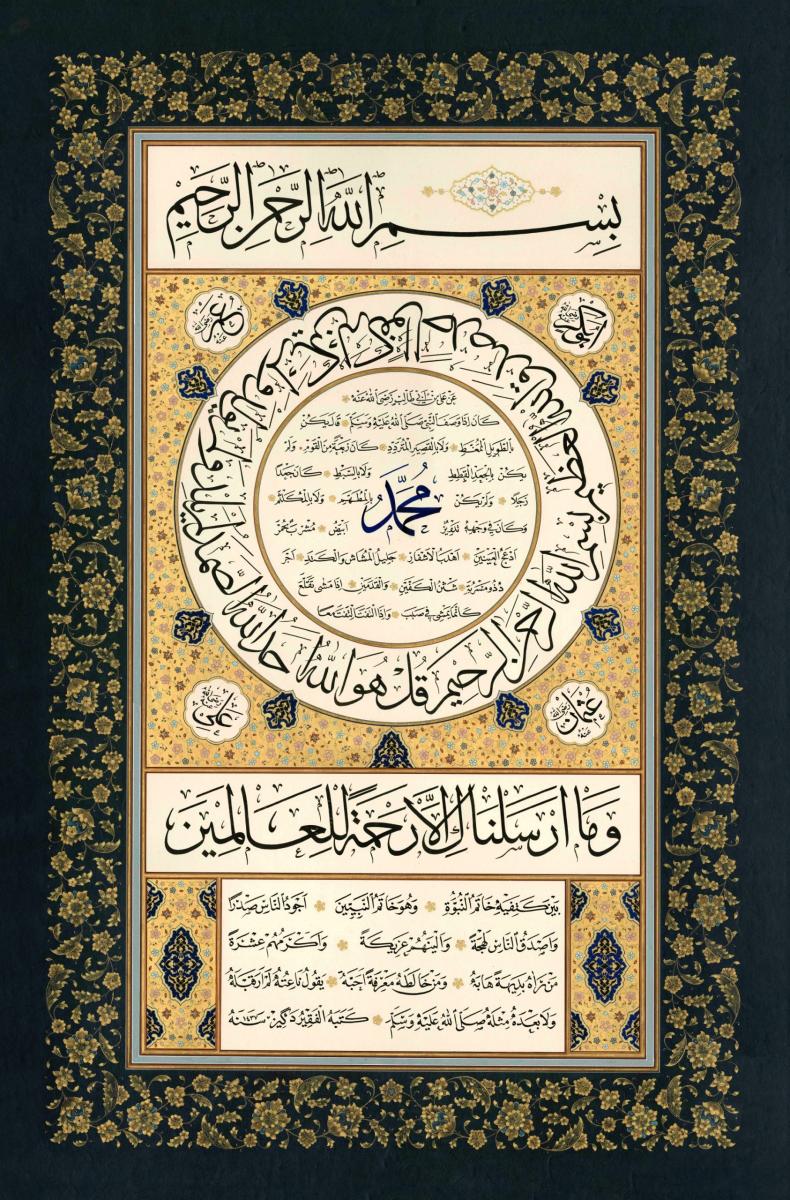 بِسْمِ اللهِ الرَّحْمٰنِ الرَّحِيْمِ
ابوبكر رضي الله عنه
عمر رضي الله عنه
بسم الله الرحمن الرحيم قل هو الله احد الله الصمد لم يلد ولم يولد ولم يكن له كفوا احد صدق الله العظيم
عن علي بن ابي طالب رضي الله عنه
كان اذا وصف النبي صلى الله عليه وسلم قال لم يكن
بالطويل الممغط ولا بالقصير المتردد كان ربعة من القوم ولم
يكن بالجعد القطط ولا بالسبط كان جعدا
رجلا ولم يكن بالمطهم ولا بالمكلثم
محمد
وكان في وجهه تدوير ابيض مشرب
ادعج العينين اهدب الاشفار جليل المشاش والكتد اجرد
ذو مسربة شثن الكفين والقدمين اذا مشى تقلع
كانما يمشي في صبب واذا التفت التفت معا
عثمان رضي الله عنه
علي رضي الله عنه
وَمَا اَرْسَلْنَاكَ اِلَّا رَحْمَةً لِلْعَالَمِيْنَ
بين كتفيه خاتم النبوة وهو خاتم النبيين اجود الناس صدرا
واصدق الناس لهجة والينهم عريكة واكرمهم عشرة
من راه بديهة هابه ومن خالطه معرفة احبه يقول ناعته لم ار قبله
ولا بعده مثله صلى الله عليه وسلم كتبه الفقير سنه ١٤٣٧